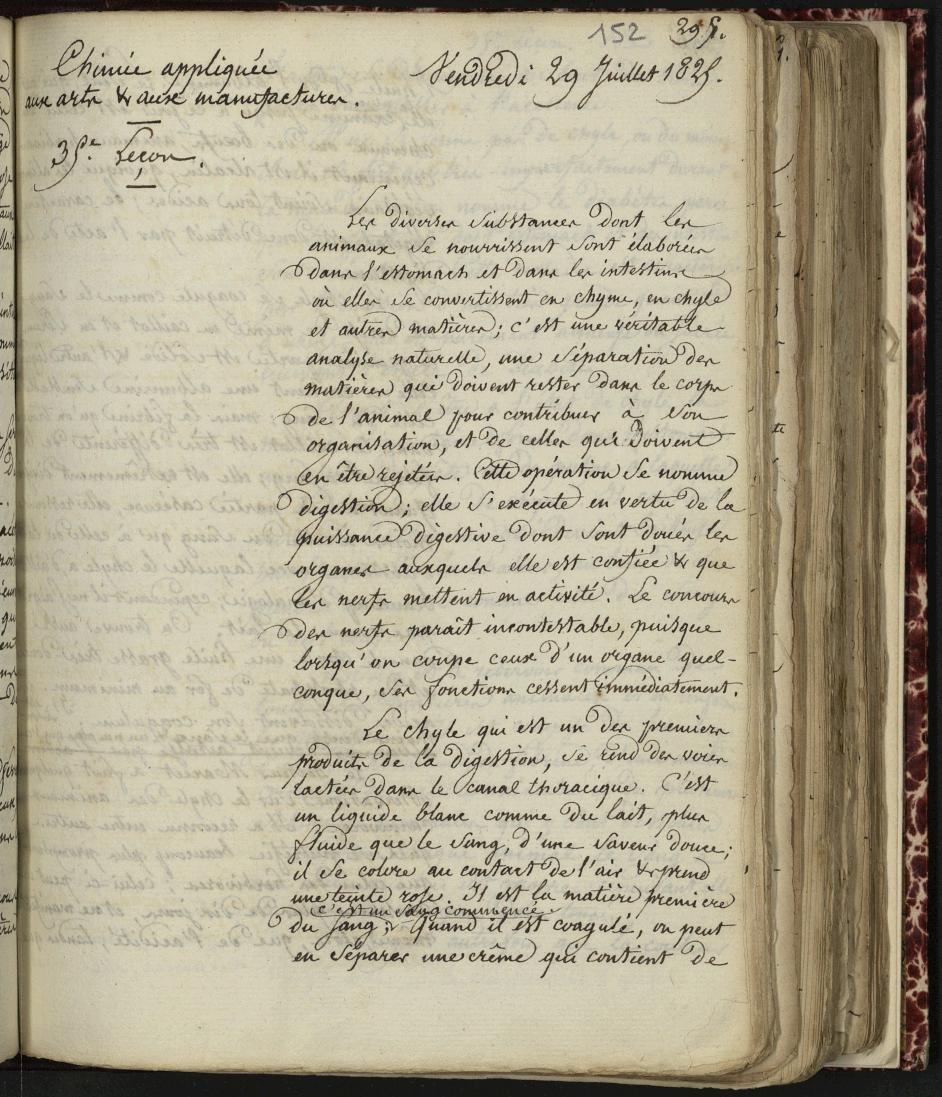 152 295.
Chimie appliquée
aux arts & aux manufactures.
Vendredi 29 Juillet 1825.
35.e Leçon.
Les diverses substances dont les
animaux se nourrissent sont élaborées
dans l'estomach et dans les intestins
où elles se convertissent en chyme, en chyle
et autres matières; c'est une véritable
analyse naturelle, une séparation des
matières qui doivent rester dans le corps
de l'animal pour contribuer à son
organisation, et de celles qui doivent
en être rejetées. Cette opération se nomme
digestion; elle s'exécute en vertu de la
puissance digestive dont sont doués les
organes auxquels elle est confiée & que
les nerfs mettent en activité. Le concours
des nerfs paraît incontestable, puisque
lorsqu'on coupe ceux d'un organe quel-
conque, ses fonctions cessent immédiatement.
Le chyle qui est un des premiers
produits de la digestion, se rend des voies
lactées dans le canal thoracique. C'est
un liquide blanc comme du lait, plus
fluide que le sang, d'une saveur douce;
il se colore au contact de l'air & prend
une teinte rose. Il est la matière première
c'est un sang commencé.
du sang; Quand il est coagulé, on peut
en séparer une crême qui contient de